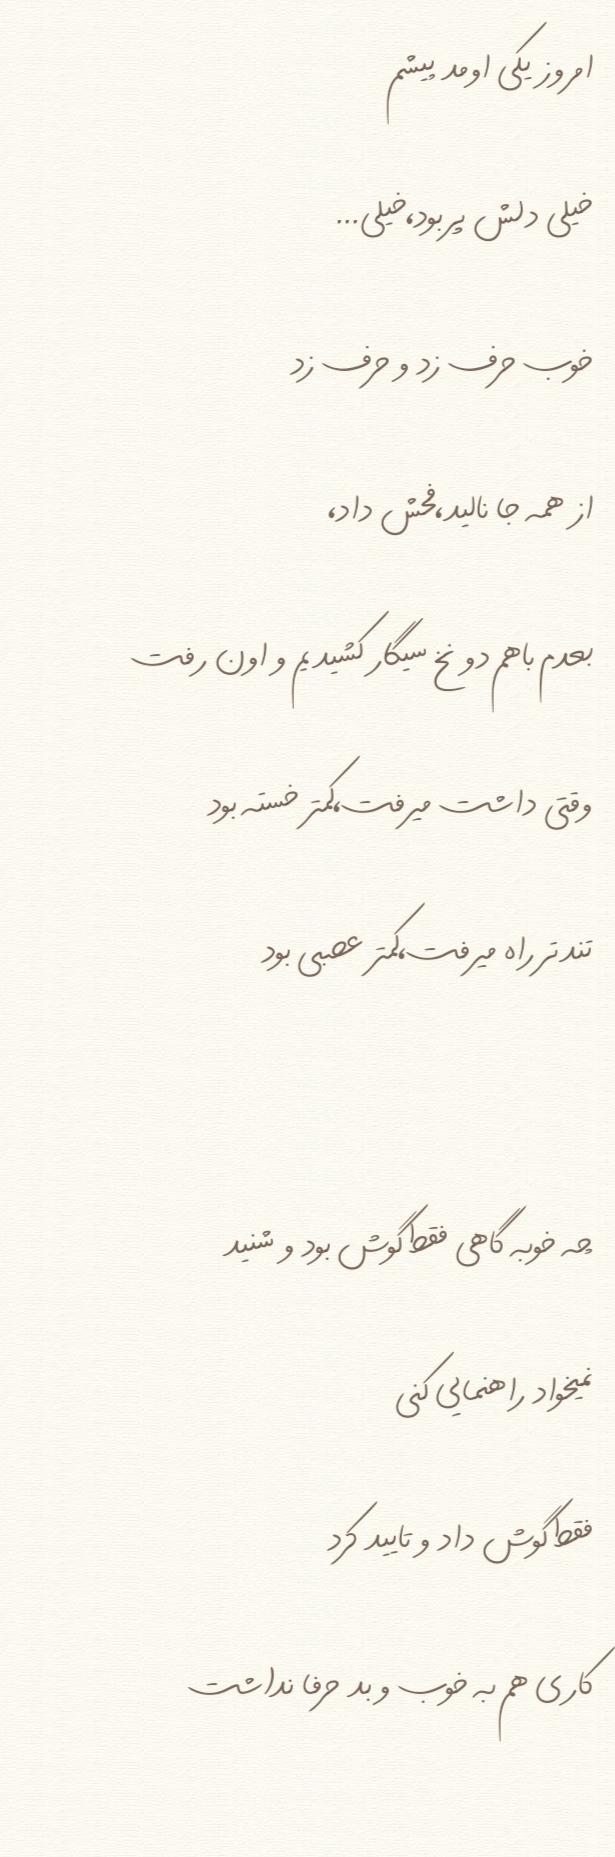 امروز یکی اومد پیشم
خیلی دلش پر بود،خیلی...
خوب حرف زد و حرف زد
از همه جا نالید،فحش داد،
بعدم باهم دو نخ سیگار کشیدیم و اون رفت
وقتی داشت میرفت،کمتر خسته بود
تندتر راه میرفت،کمتر عصبی بود
چه خوبه گاهی فقط گوش بود و شنید
نمیخواد راهنمایی کنی
فقط گوش داد و تایید کرد
کاری هم به خوب و بد حرفا نداشت